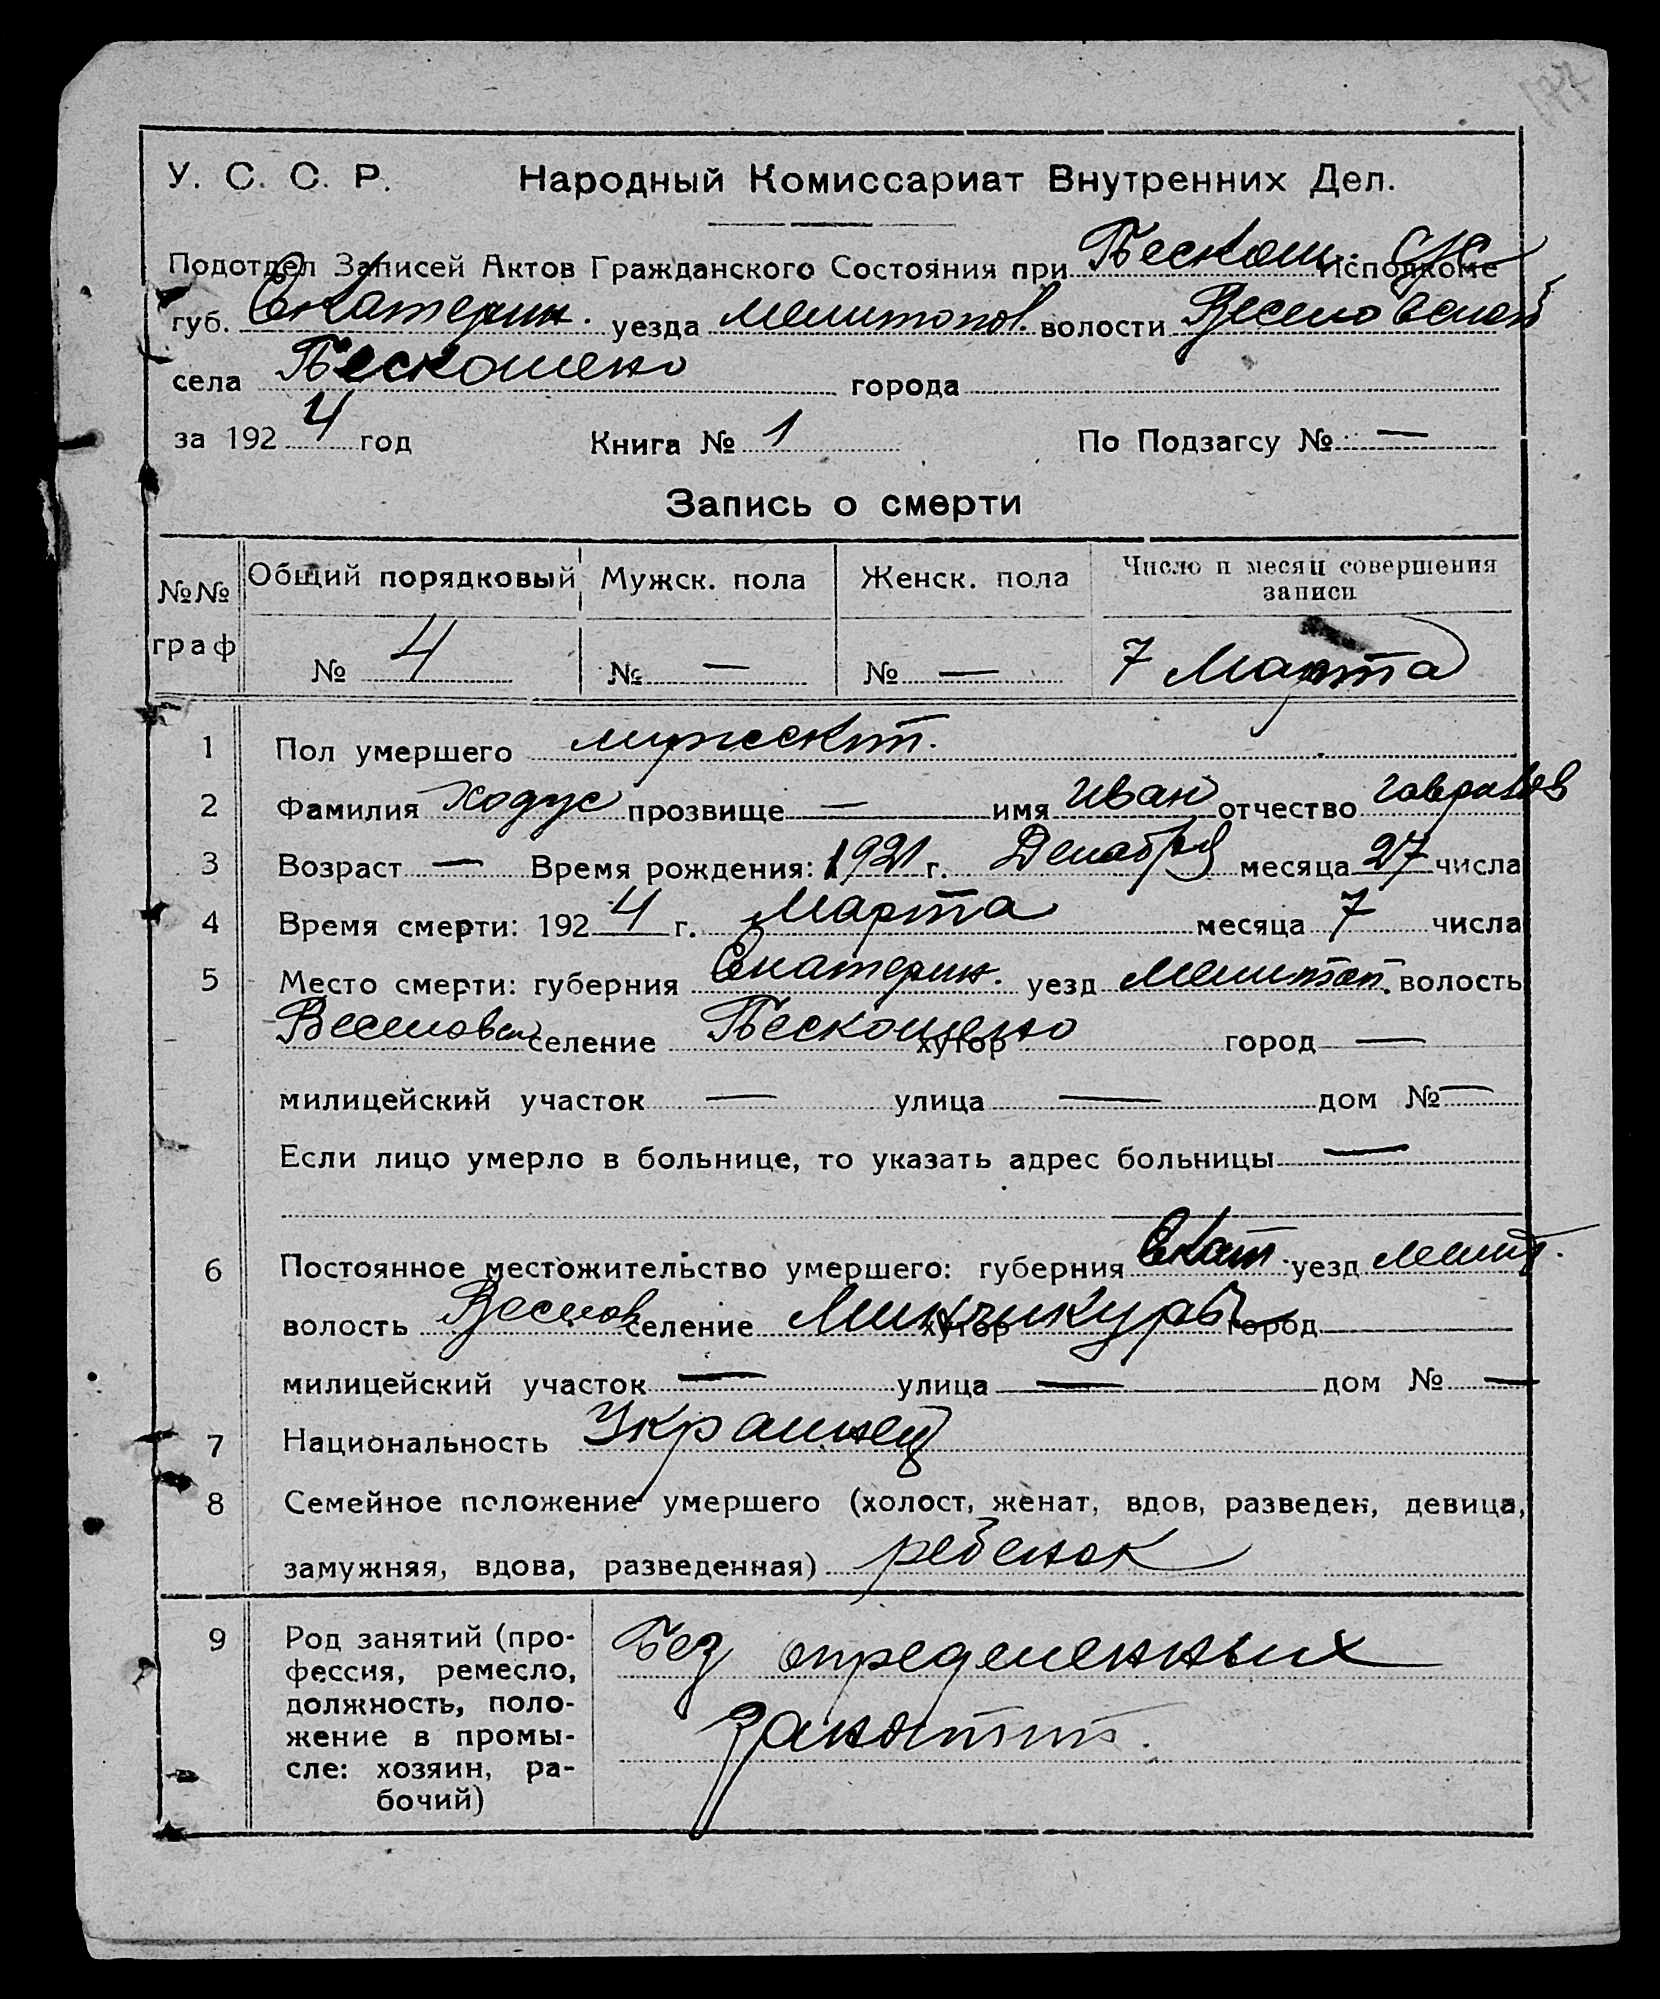 У. С. С. Р. Народный Комиссариат Внутренних Дел.
Подотдел Записей Актов Гражданского Состояния при Бескош. Исполкоме
губ. Екатерин. уезда Мелитопов. волости Веселовской
села Бескошено города
за 1924 год Книга № 1 По Подзагсу № —
Запись о смерти
№№ граф Общий порядковый Мужск. пола Женск. пола Число и месяц совершения записи
№ 4 № — № — 7 Марта
1 Пол умершего мужскот.
2 Фамилия Ходус прозвище — имя Иван отчество Гаврилов
3 Возраст — Время рождения: 1921 г. Декабря месяца 27 числа
4 Время смерти: 1924 г. Марта месяца 7 числа
5 Место смерти: губерния Екатерин. уезд Мелитоп. волость
Веселовск селение Бескошено хутор город —
милицейский участок — улица — дом № —
Если лицо умерло в больнице, то указать адрес больницы —
6 Постоянное местожительство умершего: губерния Екат. уезд Мелит.
волость Веселов селение Минчикуры хутор город
милицейский участок — улица — дом № —
7 Национальность Украинец
8 Семейное положение умершего (холост, женат, вдов, разведен, девица,
замужняя, вдова, разведенная) ребенок
9 Род занятий (про-
фессия, ремесло,
должность, поло-
жение в промы-
сле: хозяин, ра-
бочий)
Без определенных
занятит.